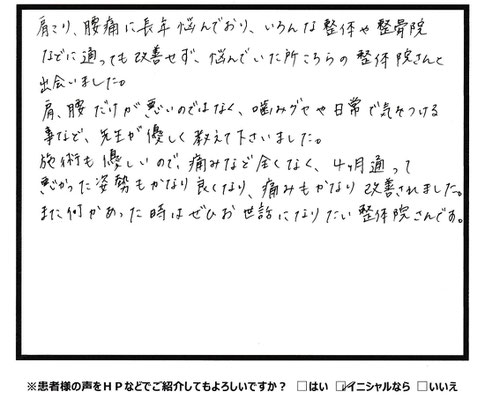 肩こり、腰痛に長年悩んでおり、いろんな整体や整骨院
などに通っても改善せず、悩んでいた所こちらの整体院さんと
出会いました。
肩、腰だけが悪いのではなく、噛みグセや日常で気をつける
事など、先生が優しく教えて下さいました。
施術も優しいので、痛みなど全くなく、4ヶ月通って
悪かった姿勢もかなり良くなり、痛みもかなり改善されました。
また何かあった時はぜひお世話になりたい整体院さんです。
※患者様の声をHPなどでご紹介してもよろしいですか? □はい ☑イニシャルなら □いいえ